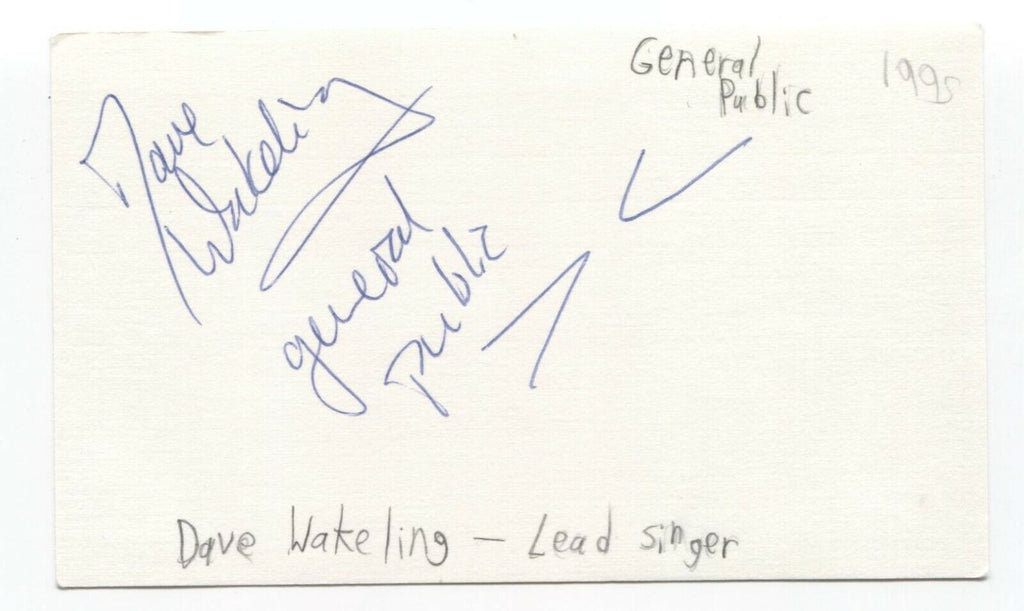 General
Public
1995
Dave
Wakeling
general
public
Dave Wakeling — Lead singer